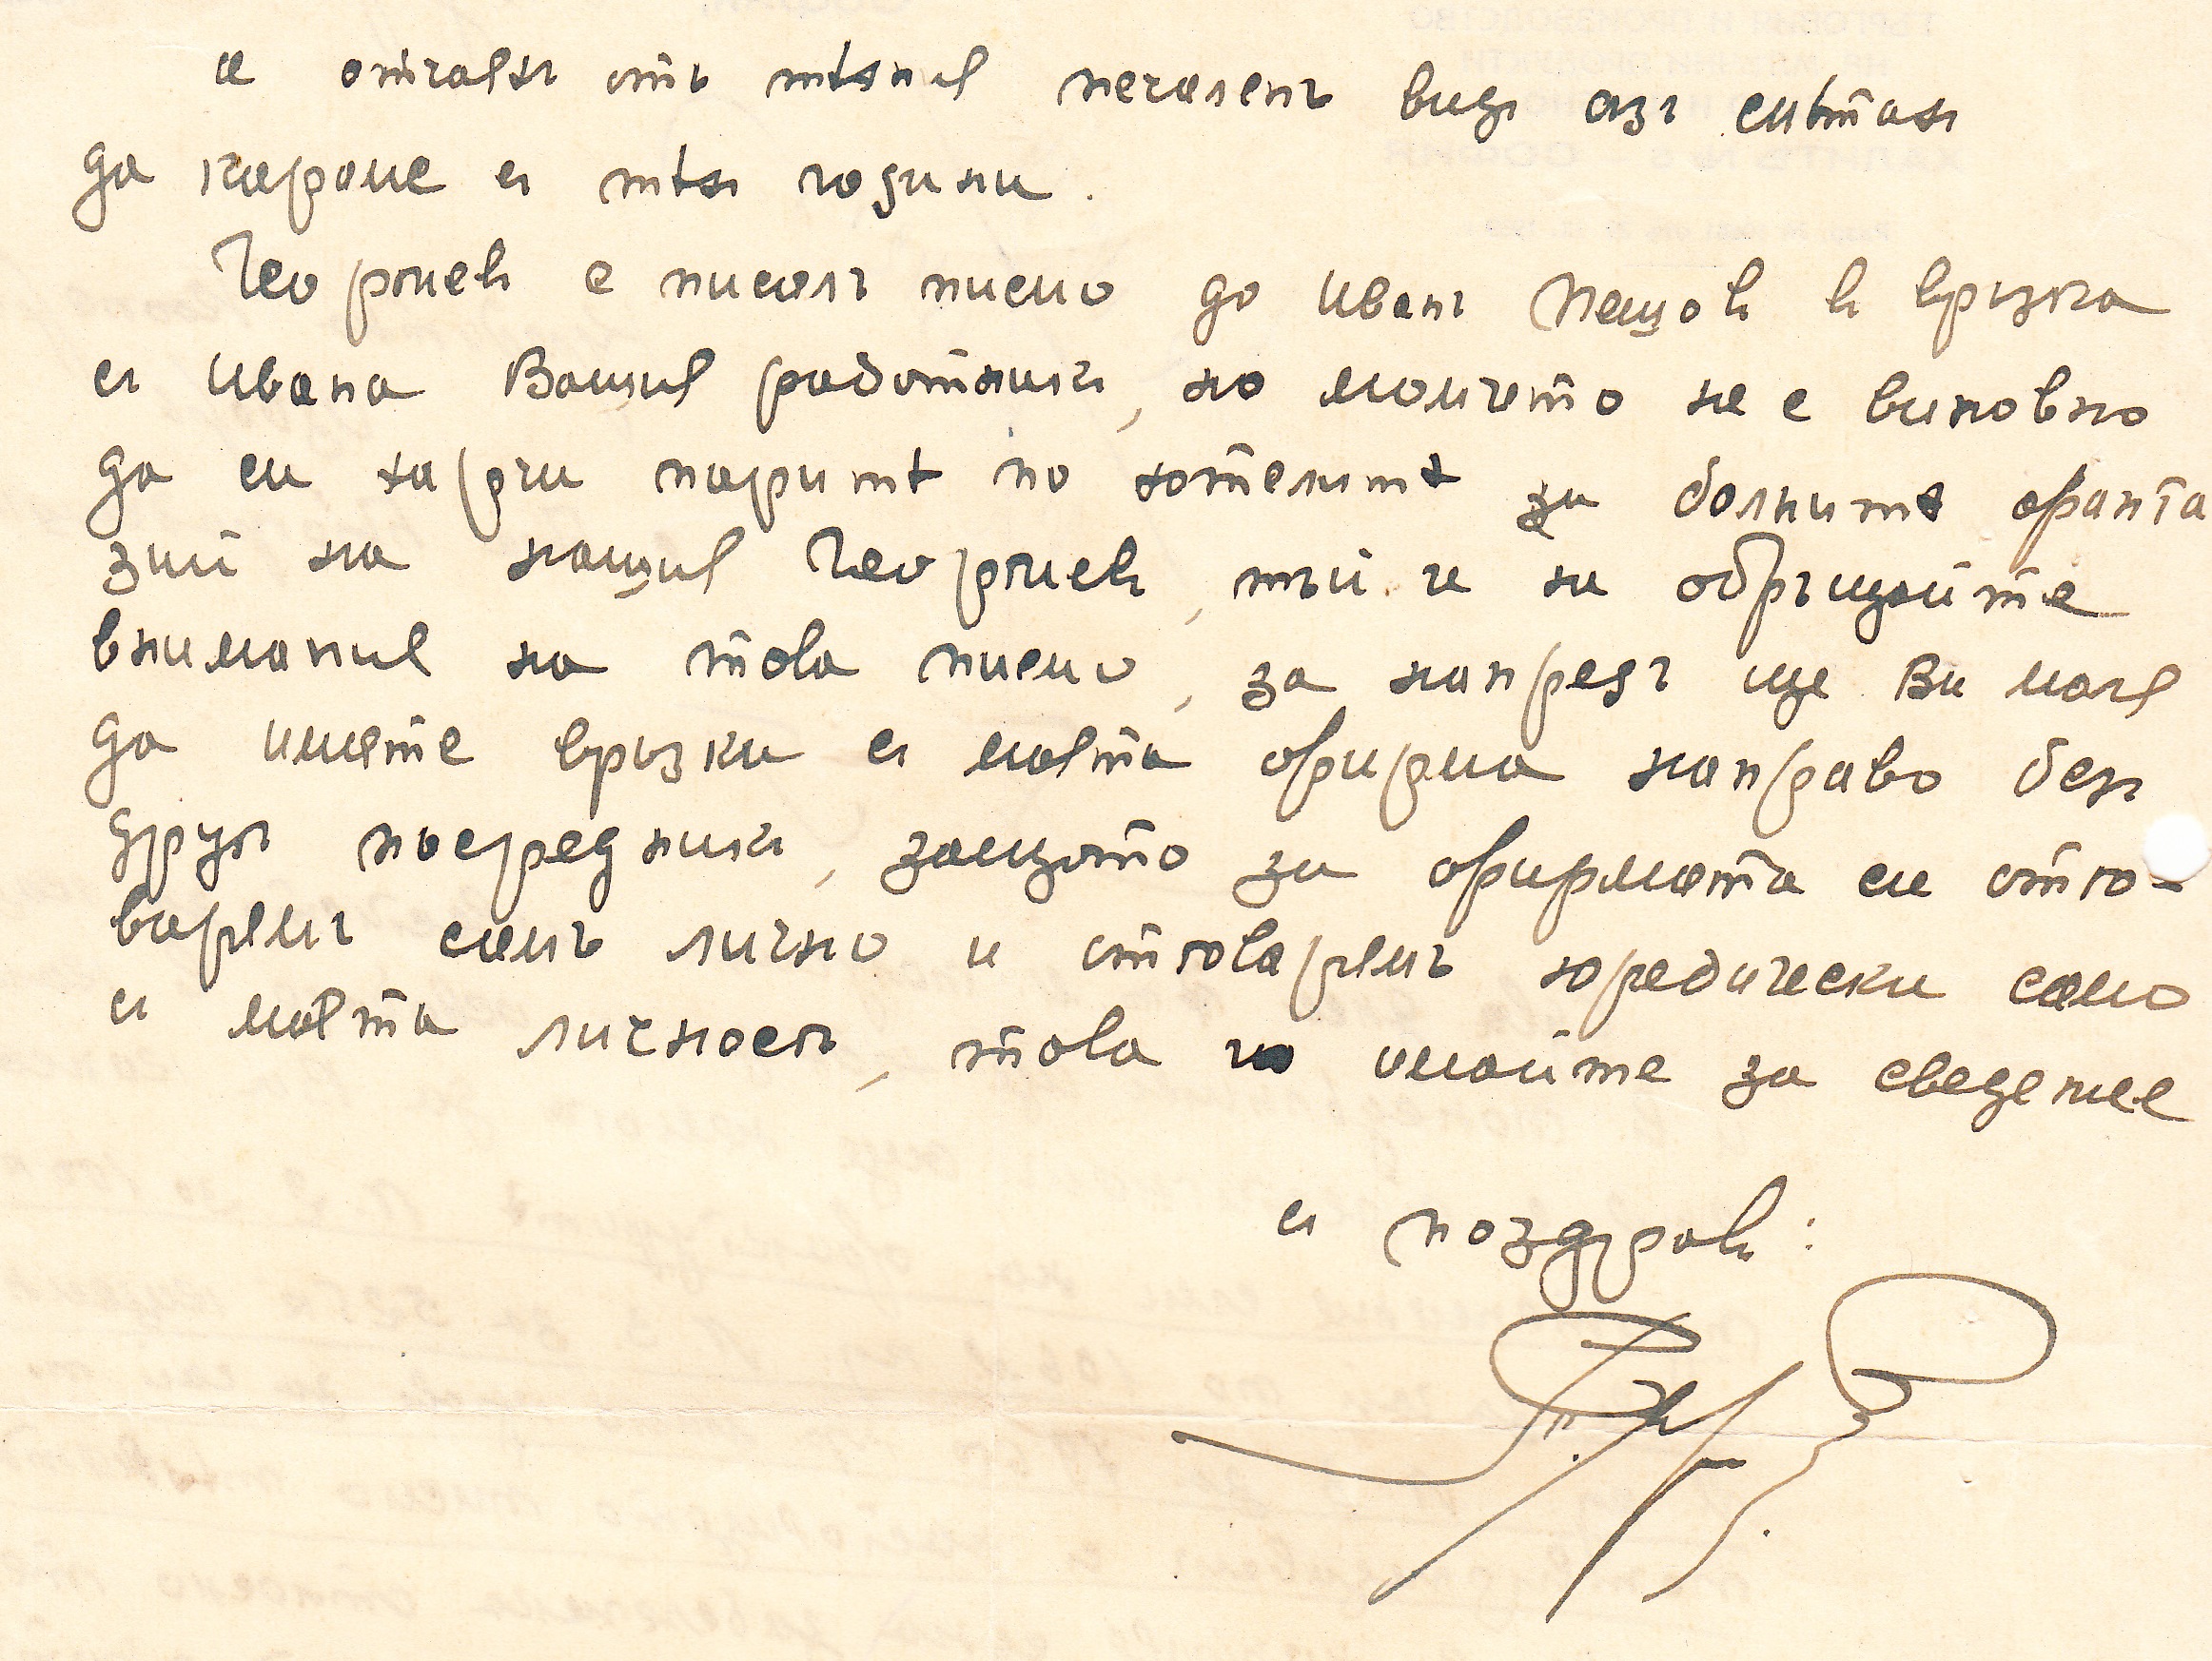 а отгавъ отъ тѣхния печаленъ видъ азъ смѣтахъ
да караме съ тѣхъ години.
Георгиевъ е писалъ писмо до Иванъ Пешовъ въ връзка
съ Ивана Вашия работникъ, но момчето не е виновно
да си харчи паритѣ по хотелитѣ за болнитѣ фанта
зии на нашия Георгиевъ, тъй че не обръщайте
внимание на това писмо, за напредъ ще Ви моля
да имате връзки съ моята фирма направо безъ
другъ посредникъ, защото за фирмата си отго-
варямъ самъ лично и отговарямъ юредически само
съ моята личность, това го имайте за сведение
съ поздравъ: